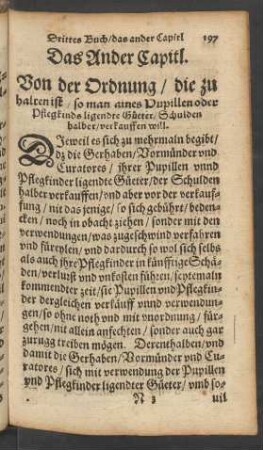 Drittes Buch/das ander Capitl 197
Das Ander Capitl.
Von der Ordnung / die zu
halten ist / so man aines Pupillen oder
Pflegkinds ligendte Güeter/Schulden
halber/verkauffen will.
DJeweil es sich zu mehrmaln begibt/
dz die Gerhaben/Vormünder vnd
Curatores / jhrer Pupillen vnnd
Pflegkinder ligendte Güeter/der Schulden
halber verkauffen/vnd aber vor der verkauf-
fung / nit das jenige/ so sich gebührt/beden-
cken / noch in obacht ziehen / sonder mit den
verwendungen/was zugeschwind verfahren
vnd füreylen / vnd dardurch so wol sich selbs
als auch jhre Pflegkinder in künfftige Schä-
den/verlust vnd vnkosten führen/seytemaln
kommendter zeit/sie Pupillen vnd Pflegkin-
der dergleichen verkäuff vnnd verwendun-
gen/so ohne noth vnd mit vnordnung / für-
gehen/nit allein anfechten / sonder auch gar
zurugg treiben mögen. Derenthalben/vnd
damit die Gerhaben/Vormünder vnd Cu-
ratores / sich mit verwendung der Pupillen
vnd Pflegkinder ligendter Güeter/ vmb so-
N 3 uil